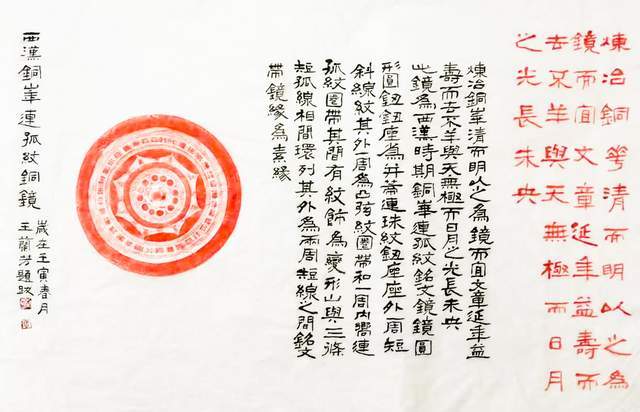 煉冶銅華清而明以之為
鏡而宜文章延年益壽而
去不羊與天無極而日月
之光長未央
煉冶銅華清而明以之為鏡而宜文章延年益
壽而去不羊與天無極而日月之光長未央
此鏡為西漢時期銅華連弧紋銘文鏡鏡圓
形圓鈕鈕座為并蒂連珠紋鈕座座外一周短
斜線紋其外一周為凸弦紋圈帶和一周內嚮連
弧紋圈帶其間有紋飾為變形山與三條
短弧線相間環列其外為兩周短線之間銘文
帶鏡緣為素緣
西漢銅華連弧紋銅鏡
歲在壬寅春月
王蘭芳題跋